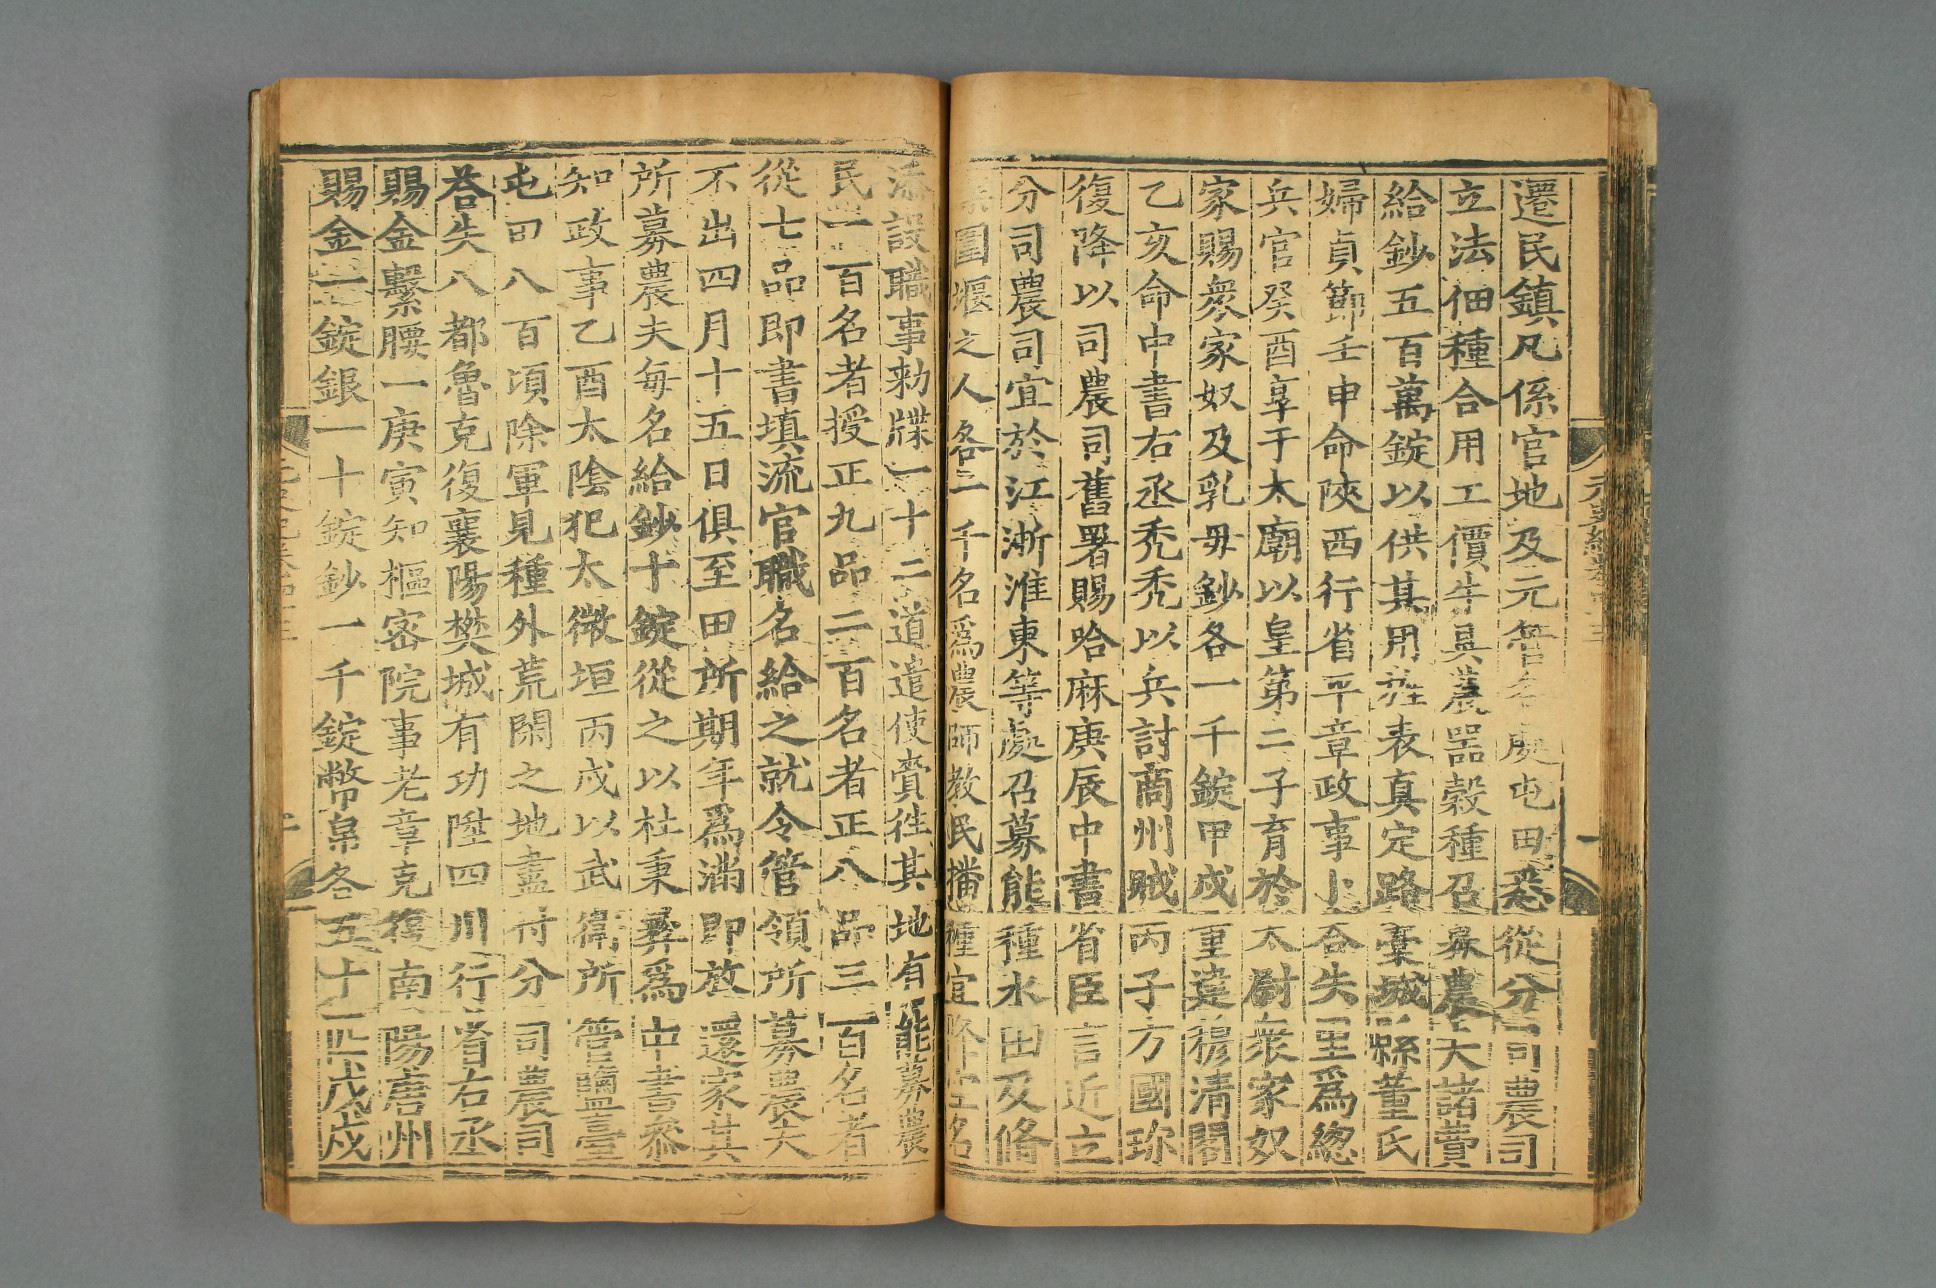 遷民鎮凡係官地及元管各處屯田悉從分司農司
立法佃種合用工價牛具農器穀種召募農夫諸費
給鈔五百萬錠以供其用旌表真定路藁城縣董氏
婦貞節壬申命陝西行省平章政事卜荅失里爲緫
兵官癸酉享于太廟以皇第二子育於太尉衆家奴
家賜衆家奴及乳母鈔各一千錠甲戌重建穆清閣
乙亥命中書右丞禿禿以兵討商州賊丙子方國珍
復降以司農司舊署賜哈麻庚辰中書省臣言近立
分司農司宜於江淅淮東等處召募能種水田及脩
築圍堰之人各一千名爲農師教民播種宜降空名
添設職事勑牒一十二道遣使賫徃其地有能募農
民一百名者授正九品二百名者正八品三百名者
從七品即書填流官職名給之就令管領所募農夫
不出四月十五日俱至田所期年爲滿即放還家其
所募農夫每名給鈔十錠從之以杜秉彝爲中書參
知政事乙酉太陰犯太微垣丙戌以武衞所管鹽臺
屯田八百頃除軍見種外荒閑之地盡付分司農司
荅失八都魯克復襄陽樊城有功陞四川行省右丞
賜金繫腰一庚寅知樞密院事老章克復南陽唐州
賜金一錠銀一十錠鈔一千錠幣帛各五十一匹戊戌
元史紀卷四十三